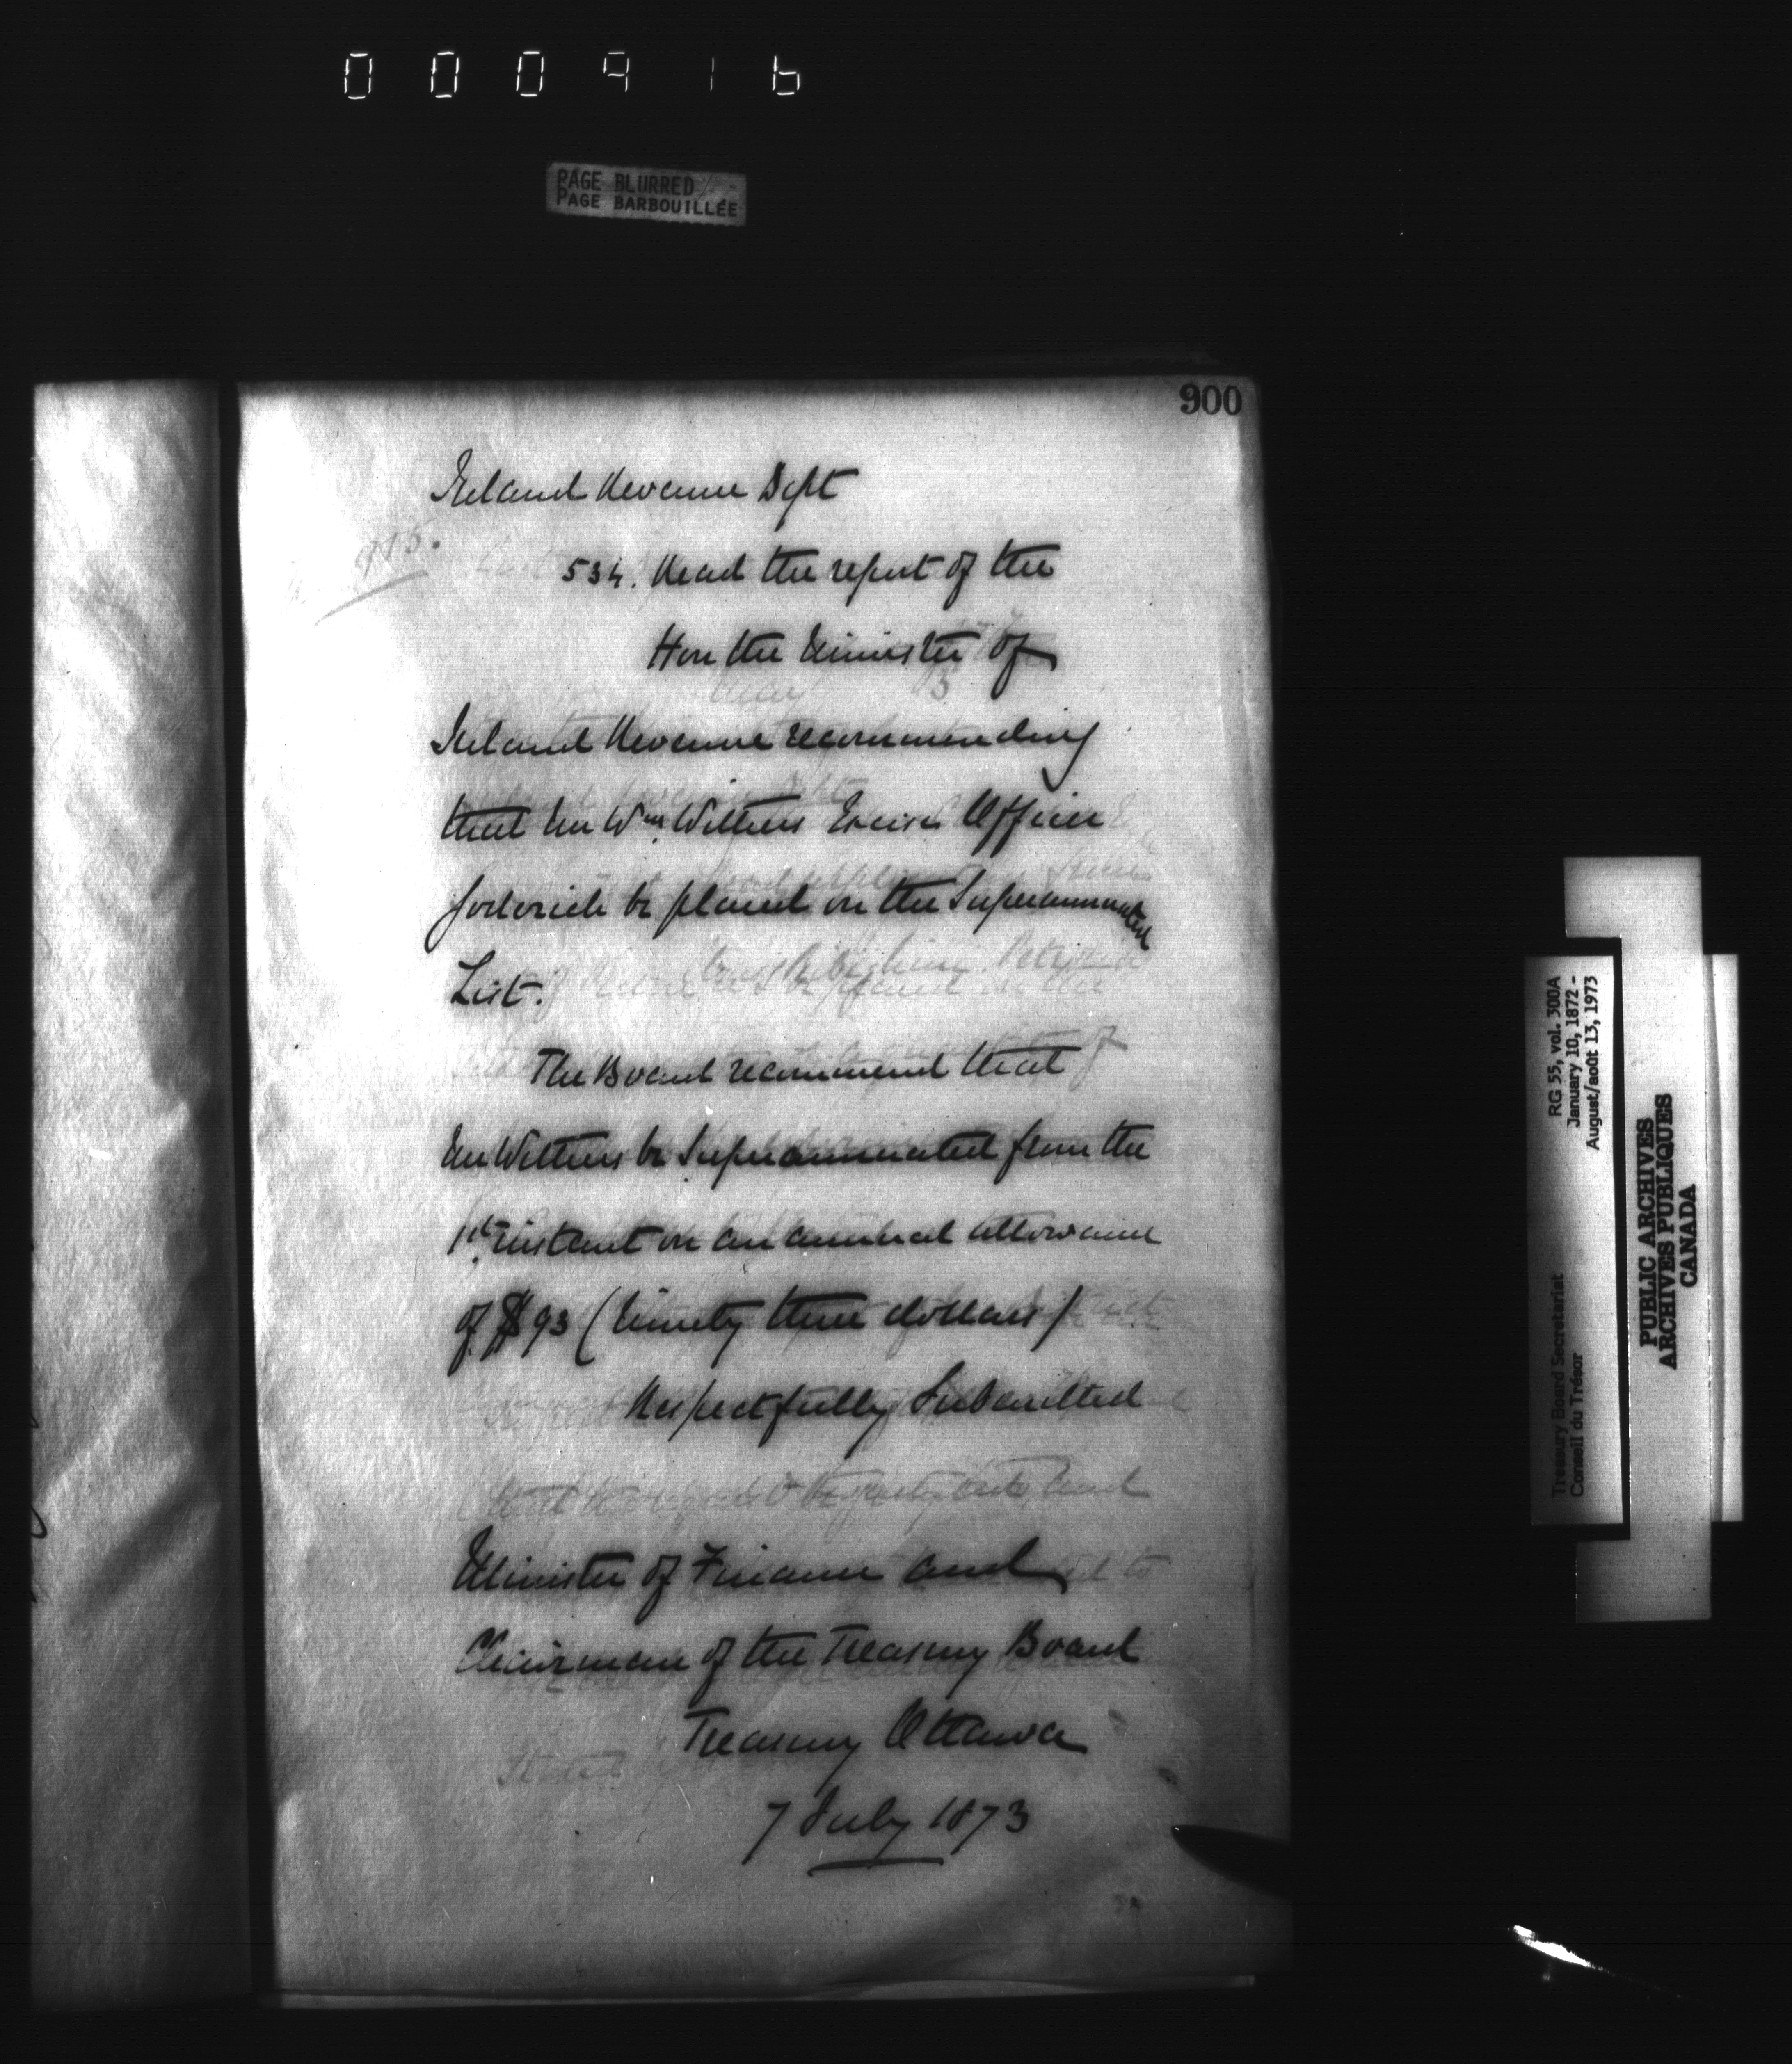 000916
PAGE BLURRED
PAGE BARBOUILLÉE
900
Inland Revenue Dept
915.
534. Read the report of the
Hon the Minister of
Inland Revenue recommending
that Mr Wm Withers Excise Officer
Goderich be placed on the Superannuated
List.
The Board recommend that
Mr Withers be Superannuated from the
1st instant on an annual allowance
of $93 (Ninety three dollars)
Respectfully Submitted
Minister of Finance and
Chairman of the Treasury Board
Treasury Ottawa
7 July 1873
Treasury Board Secretariat
Conseil du Trésor
RG 55, vol. 300A
January 10, 1872 -
August/août 13, 1973
PUBLIC ARCHIVES
ARCHIVES PUBLIQUES
CANADA